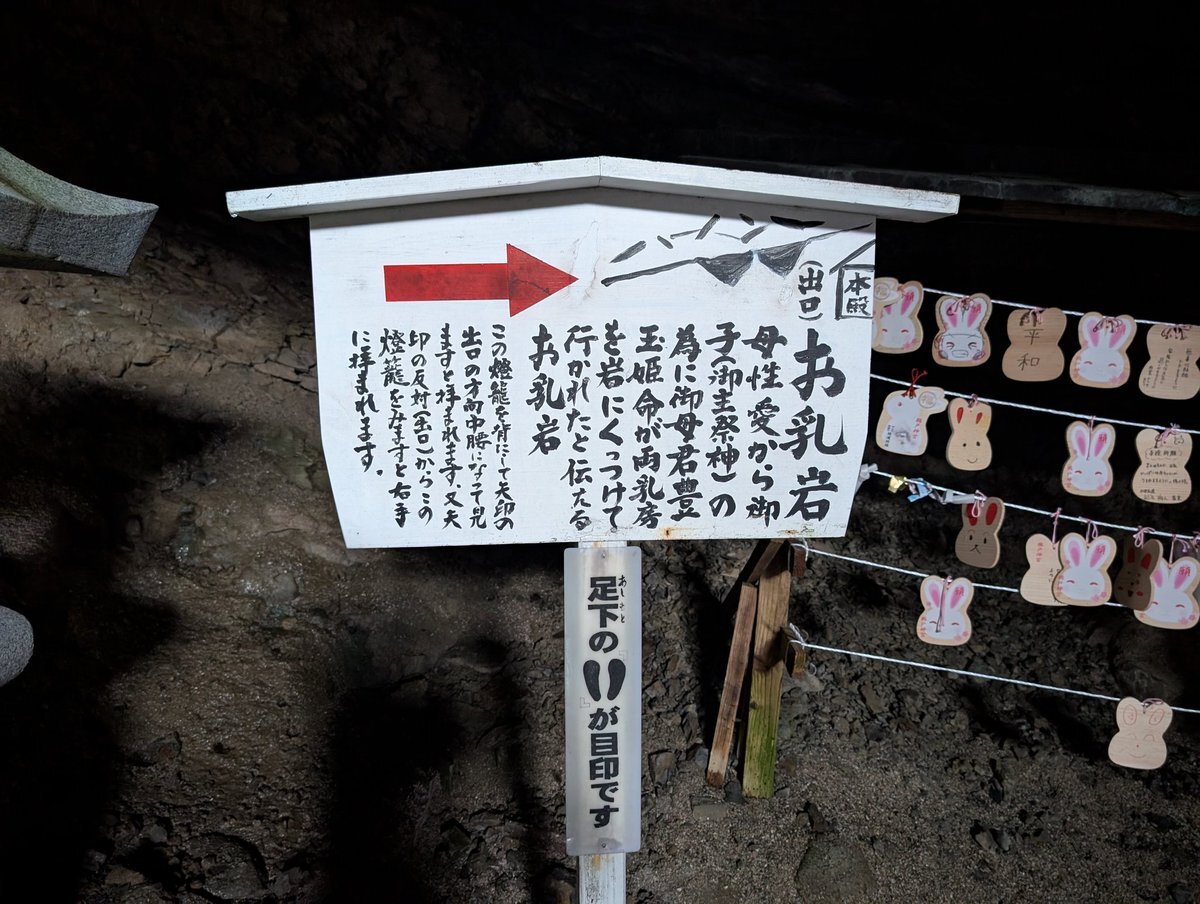 本殿
(出口)
お乳岩
母性愛から御
子(御主祭神)の
為に御母君豊
玉姫命が両乳房
を岩にくっつけて
行かれたと伝える
お乳岩
この燈籠を背にして矢印の
出口の方向中腰になって見
ますと拝まれます。又矢
印の反対(出口)からこの
燈籠をみますと右手
に拝まれます。
足下の
あしもと
が目印です
平和